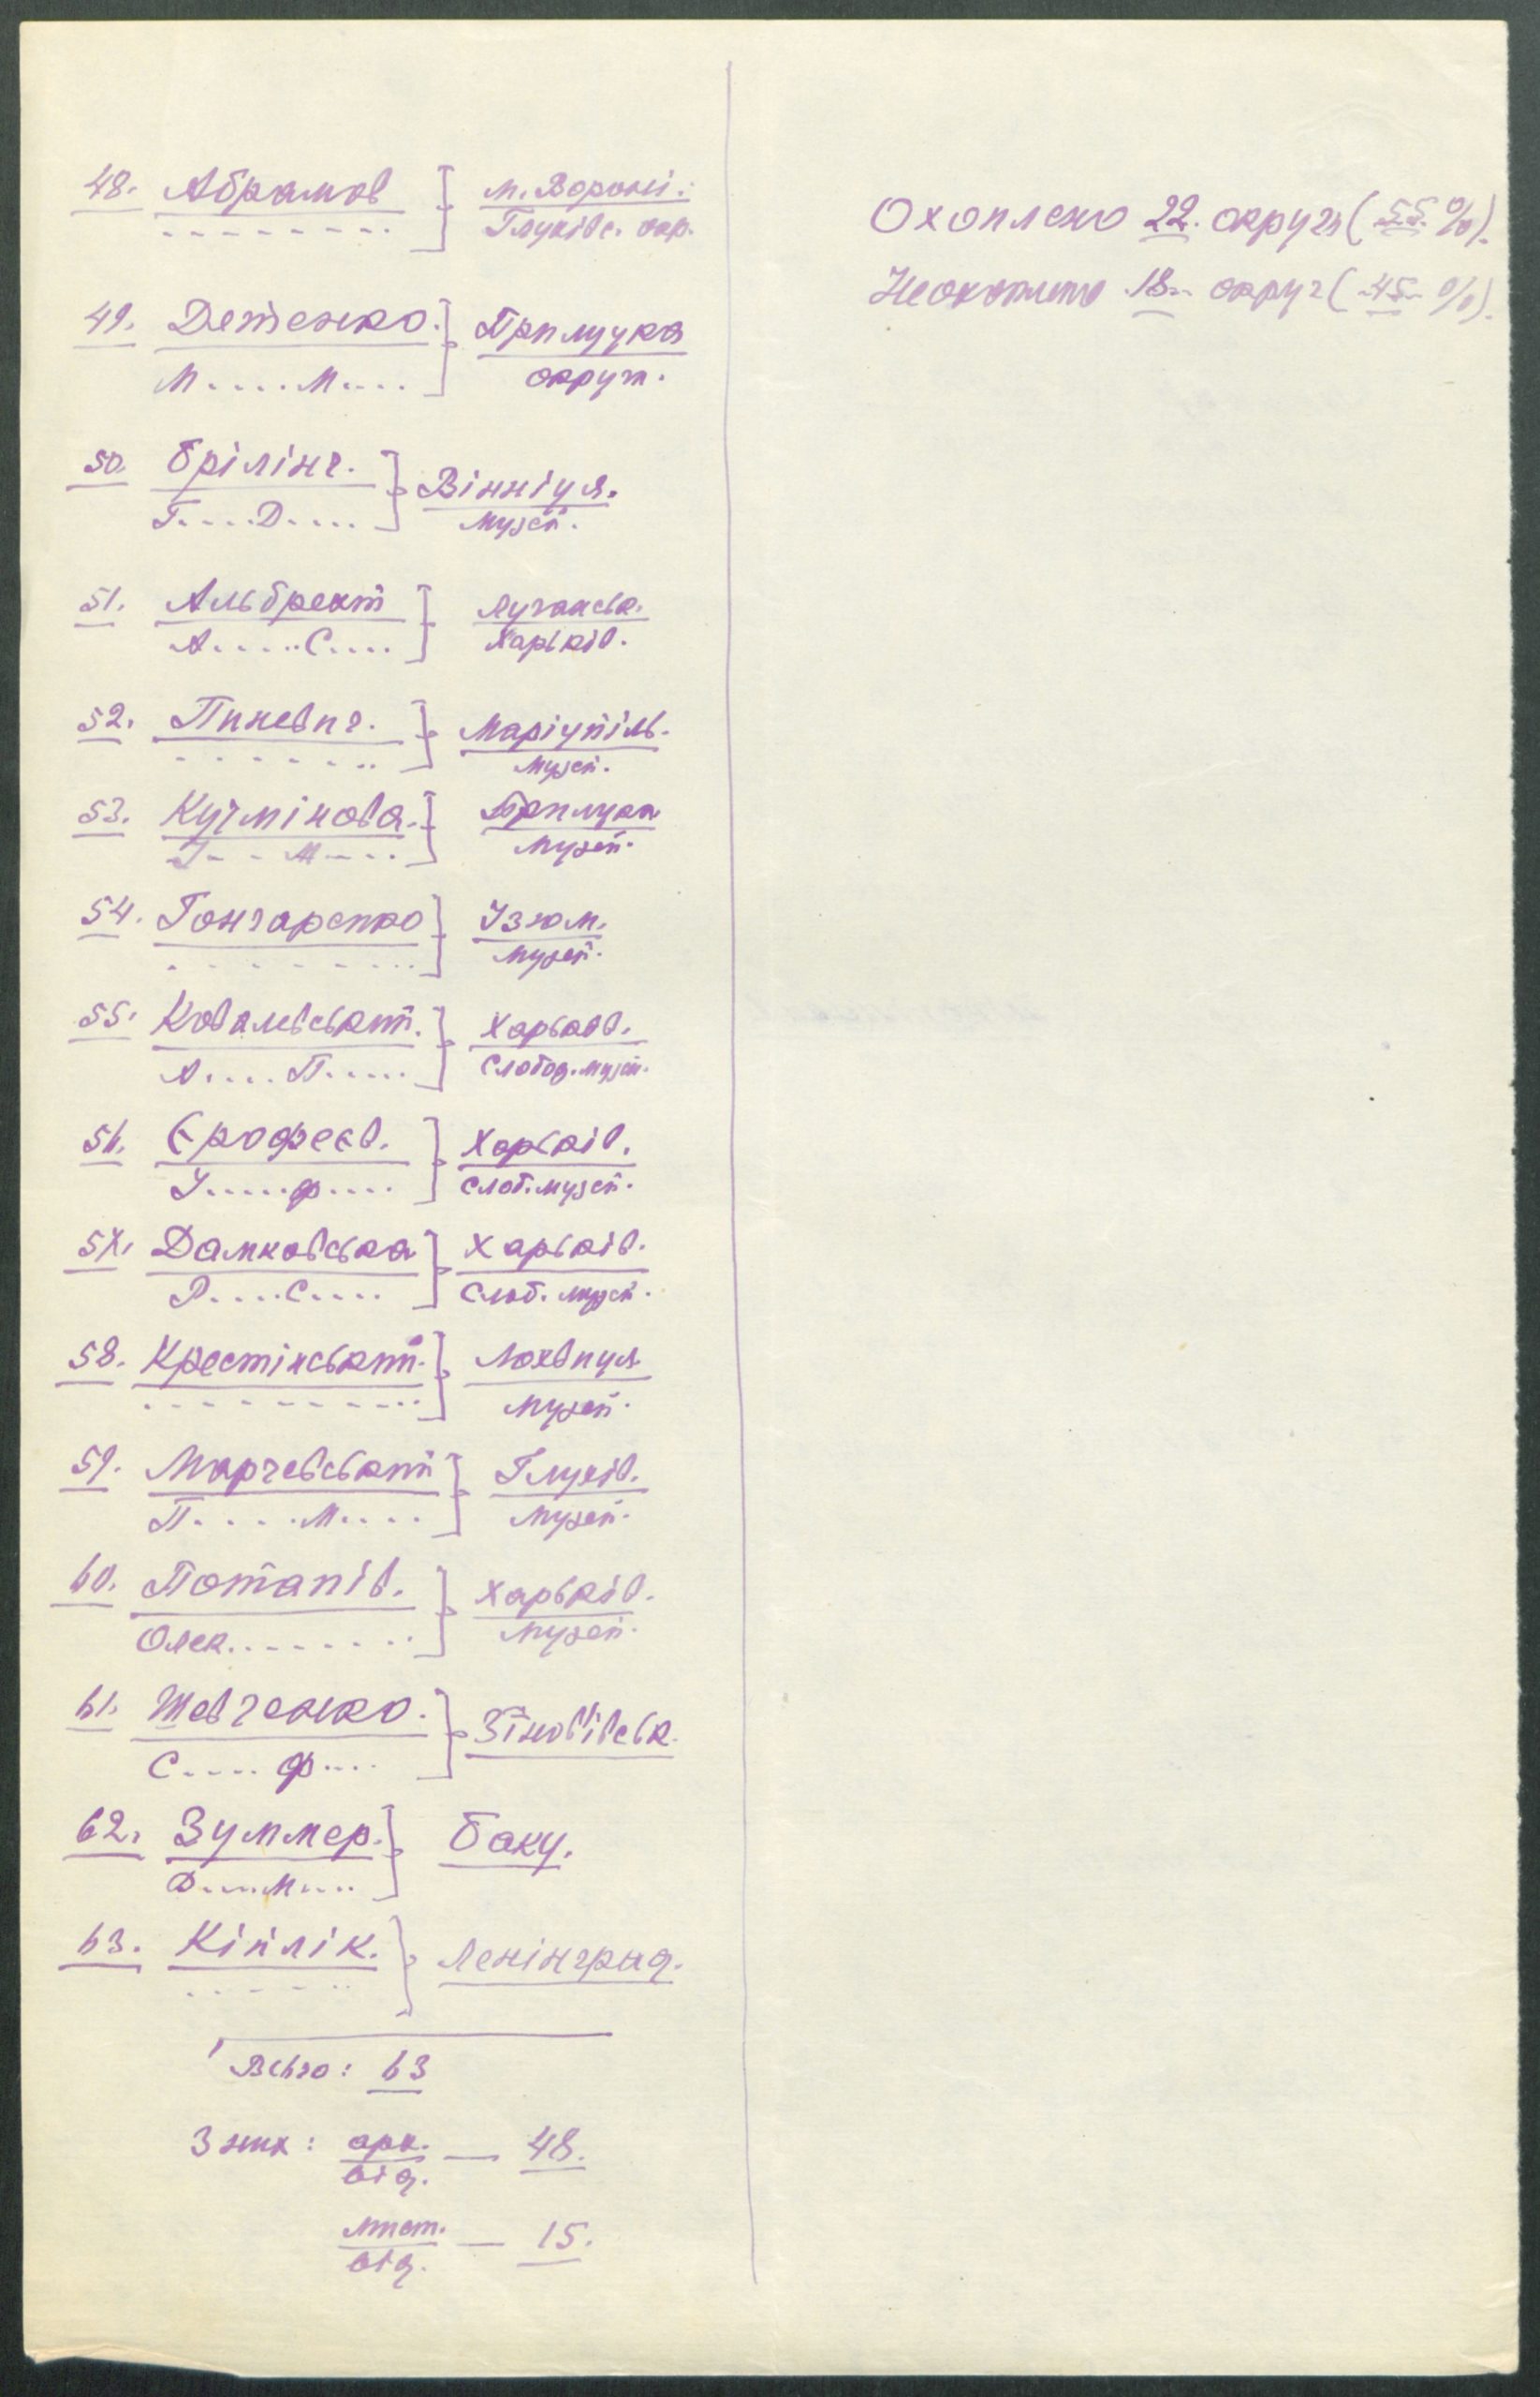 48. Абрамов
м. Вороні.
Глухівс. окр.
49. Детенко.
М.....М....
Прилука
округ.
50. Брілінг.
Г.....Д.....
Вінниця.
музей.
51. Альбрехт
А.....С....
Луганськ.
Харьків.
52. Пиневич.
Маріупіль.
музей.
53.
Прилука
музей.
54. Гончаренко
Ізюм.
музей.
55. Ковалевський.
А.... П.....
Харьків.
Слобод. музей.
56. Єрофеєв.
І.....Ф....
Харьків.
Слоб. музей.
57. Данковська
Р.....С....
Харьків.
Слоб. музей.
58. Крестінський.
Лохвиця
музей.
59. Марчевський
П.....М.....
Глухів.
музей.
60. Потапів.
Олек........
Харьків.
музей.
61. Шевченко.
С..... Ф...
Зінов'івськ.
62. Зуммер.
В.....М....
Баку.
63. Кіплік.
Ленінград.
Всього: 63
З них: арх. від. — 48.
мист. від. — 15.
Охоплено 22. округи (55%).
Неохоплено 18. округ (45%).